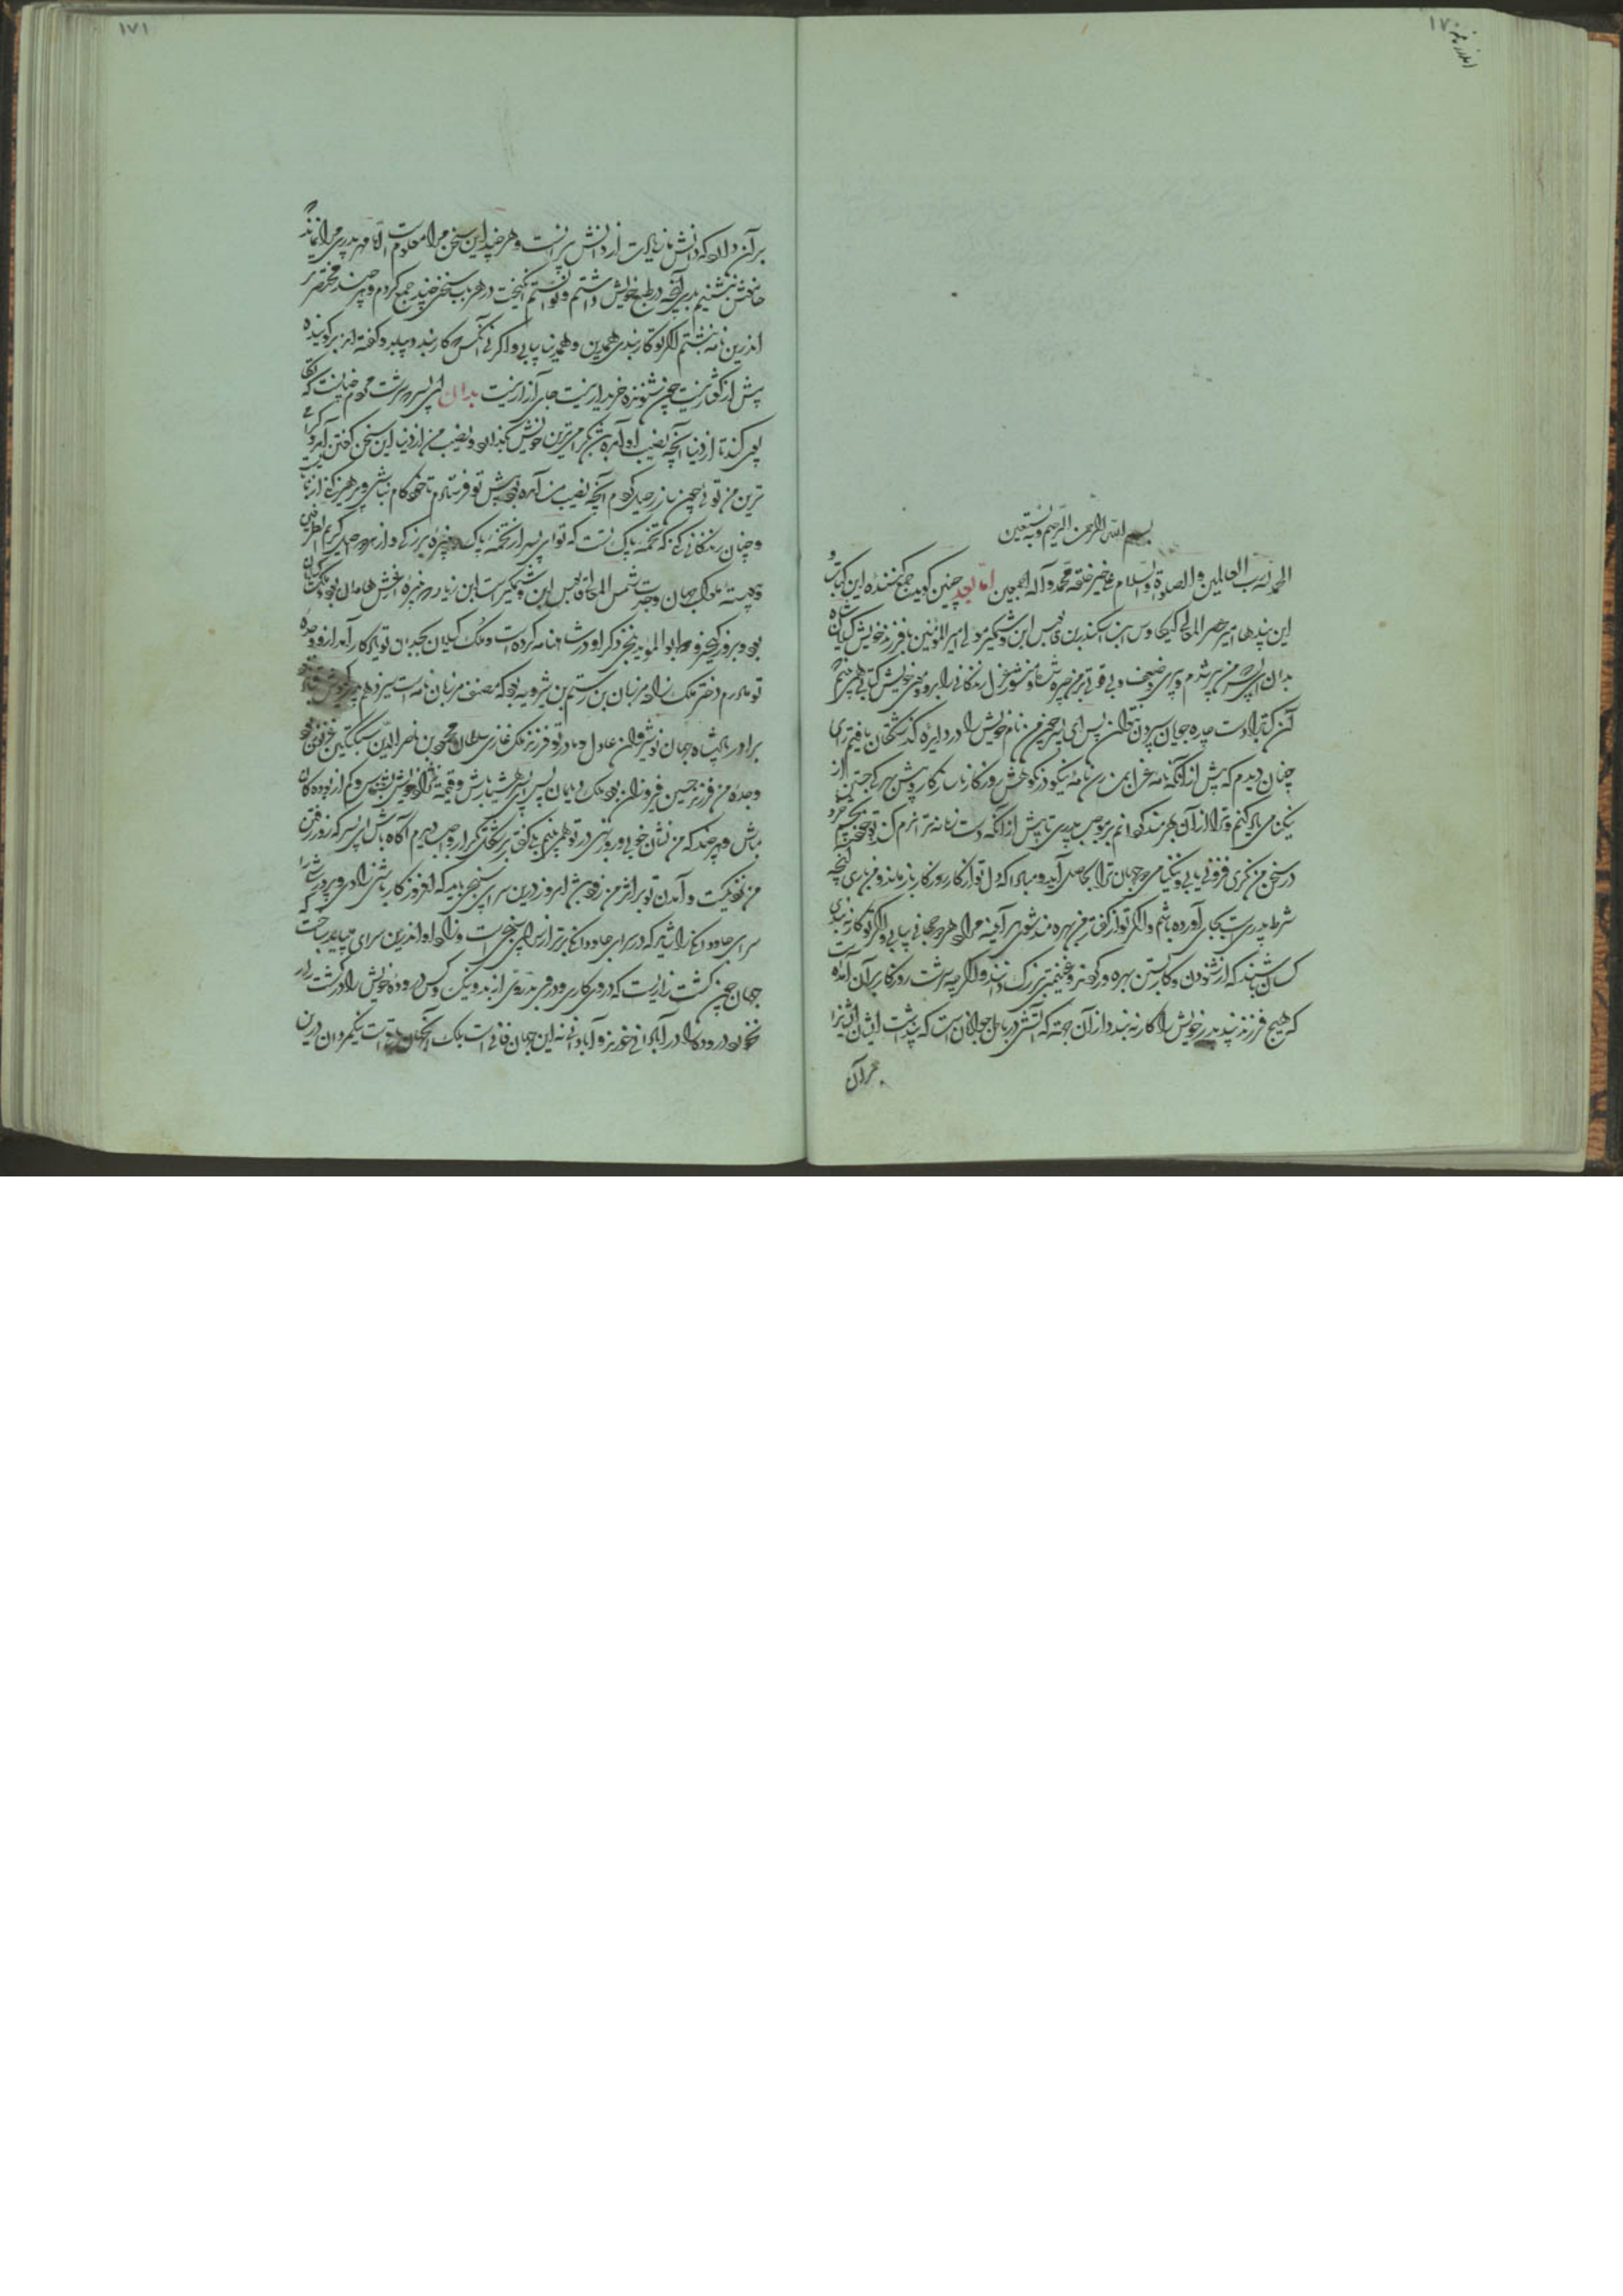 ۱۷۰
بسم الله الرحمن الرحیم وبه نستعین
الحمد لله رب العالمین والصلوة والسلام علی خیر خلقه محمد وآله اجمعین اما بعد چنین گوید جمع کننده این کتاب و
این پندها امیر عنصر المعالی کیکاوس ابن اسکندر بن قابوس ابن وشمگیر مولی امیر المؤمنین با فرزند خویش گیلان شاه
بدان ای پسر که من پیر شدم و پیری و ضعیفی و بی قوتی بر من چیره شد و منشور عزل زندگانی را بر روی خویش کتابتی همی بینم
که آن کتابت را دست چاره جویان سترون نتوان پس ای پسر چون من نام خویش را در دایره گذشتگان یافتم رای
چنان دیدم که پیش از آنکه نامه عزل بمن رسد نامه نیکو در نکوهش روزگار و سازش کار و بیش بهرگی جستن از
نیکنامی یاد کنم و ترا از آن بهره مند گردانم بر موجب مهر پدری تا پیش از آنکه دست زمانه ترا نرم کند تو خود بچشم خرد
در سخن من نگری فزونی یابی و نیکنامی دو جهان ترا حاصل آید و مبادا که دل تو از کار روزگار باز ماند و من باری آنچه
شرط پدریست بجای آورده باشم و اگر تو از گفتار من بهره مند نشوی آینه مراد هر دو جهانی بیابی و اگر تو کار نبندی
کسان باشند که از شنودن و کار بستن بهره ور گردند و غنیمتی بزرگ دانند و اگر چه سرشت روزگار بر آن آمده است
که هیچ فرزند پند پدر خویش را کار نبندد از آن جهة که آتشی در باطن جوانان است که پنداشت ایشان ایشانرا
بر آن
۱۷۱
بر آن دارد که دانش ما زیادت از دانش پیرانست و هر چند این سخن مرا معلوم است اما مهر پدری مرا نماند که
خاموش بنشینم پس آنچه در طبع خویش داشتم و توانستم انگیخت در هر باب سخنی چند جمع کردم و هر چند مختصر تر
اندرین نامه نبشتم اگر تو کار بندی همه این و همه دنیا بیابی و اگر نه آنکس که کار بندد بیابد و گفته اند بر گوینده
بیش از گفتار نیست چون شنونده خریدار نیست جای آزار نیست بدان ای پسر سرشت مردم چنانست که تکاپوی
کند تا از دنیا آنچه نصیب او آمده باشد بگرامی ترین خویش بگذارد و نصیب من از دنیا این سخن گفتن آمد و گرامی
ترین من توئی چون ساز رحیل کردم آنچه نصیب من آمده بود پیش تو فرستادم تا خودکام نباشی و پرهیز کنی از ناشایست
و چنان زندگانی کنی که تخمه پاک تست که تو ای پسر از تخمه پاک و نبیره بزرگی و از هر دو جد کریم الطرفینی
و پیوسته ملوک جهان وجدت شمس المعالی قابوس ابن وشمگیر است ابن زیار و نبیره ارغش فرهادان بود و ملک گیلان
بود و بروزگار کیخسرو و ابوالمؤید بلخی ذکر او در شاهنامه کرده است و ملک گیلان بجدان تو یادگار آمد از او و جده
تو مادرم دختر ملک زاده مرزبان بن رستم بن شروین بود که مصنف مرزبان نامه است سیزدهم پدرش کیوس بن قباد بود
برادر پادشاه جهان نوشیروان عادل و مادر تو فرزند ملک غازی سلطان محمود بن ناصر الدین سبکتگین غزنوی بود
وجده من فرزند حسن فیروزان بود ملک دیلمان پس ای پسر هشیار باش و قیمت نژاد خویش بشناس و کم از بوده گان
مباش و هر چند که من نشان خوبی و روزبهی در تو همی بینم باری گفتار بر شرط تکرار واجب دیدم آگاه باش ای پسر که روز رفتن
من نزدیکست و آمدن تو بر اثر من زود باشد امروز درین سرای سپنجی باید که اندوز کار باشی زادی و پرورشی را که
سرای جاودانی را شاید که سرای جاودانی برتر از سرای سپنجی است و زاد او اندرین سرای میباید ساخت
جهان چون کشت زاریست که در وی کاری و دروی بدروی از بد و نیک و کس دروده خویش را در کشت زار
نخورد و دروده را در آبادانی خورند و آبادانی نه این جهان فانی است بلک آنجهان باقیست نیکمردان درین